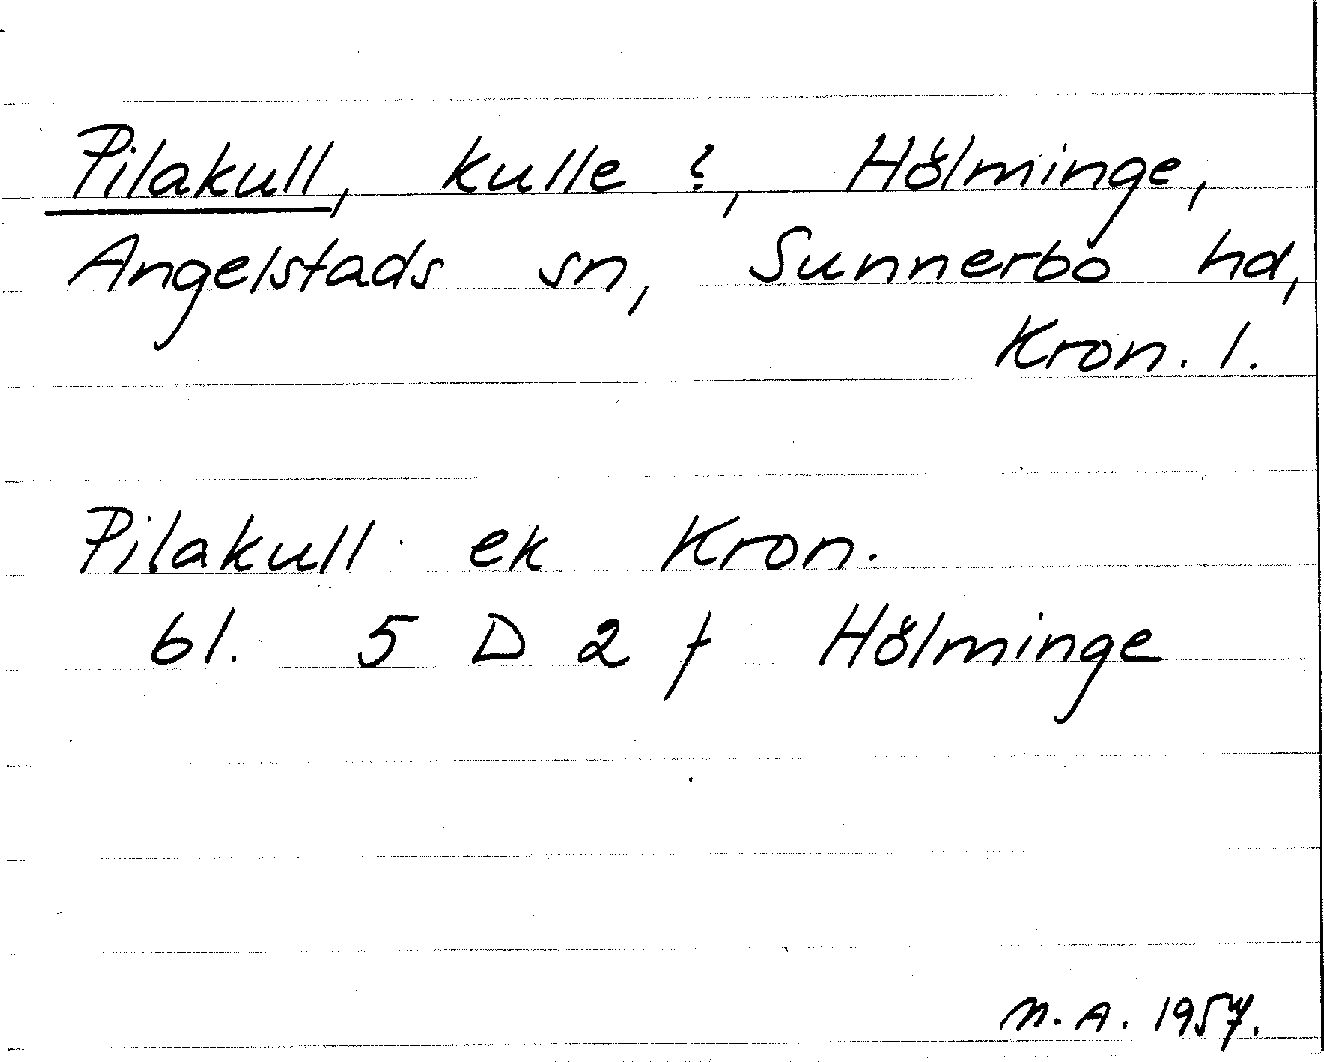 Pilakull, kulle ?, Hölminge,
Angelstads sn, Sunnerbo hd,
Kron. l.
Pilakull ek Kron.
bl. 5 D 2 f Hölminge
M. A. 1957.